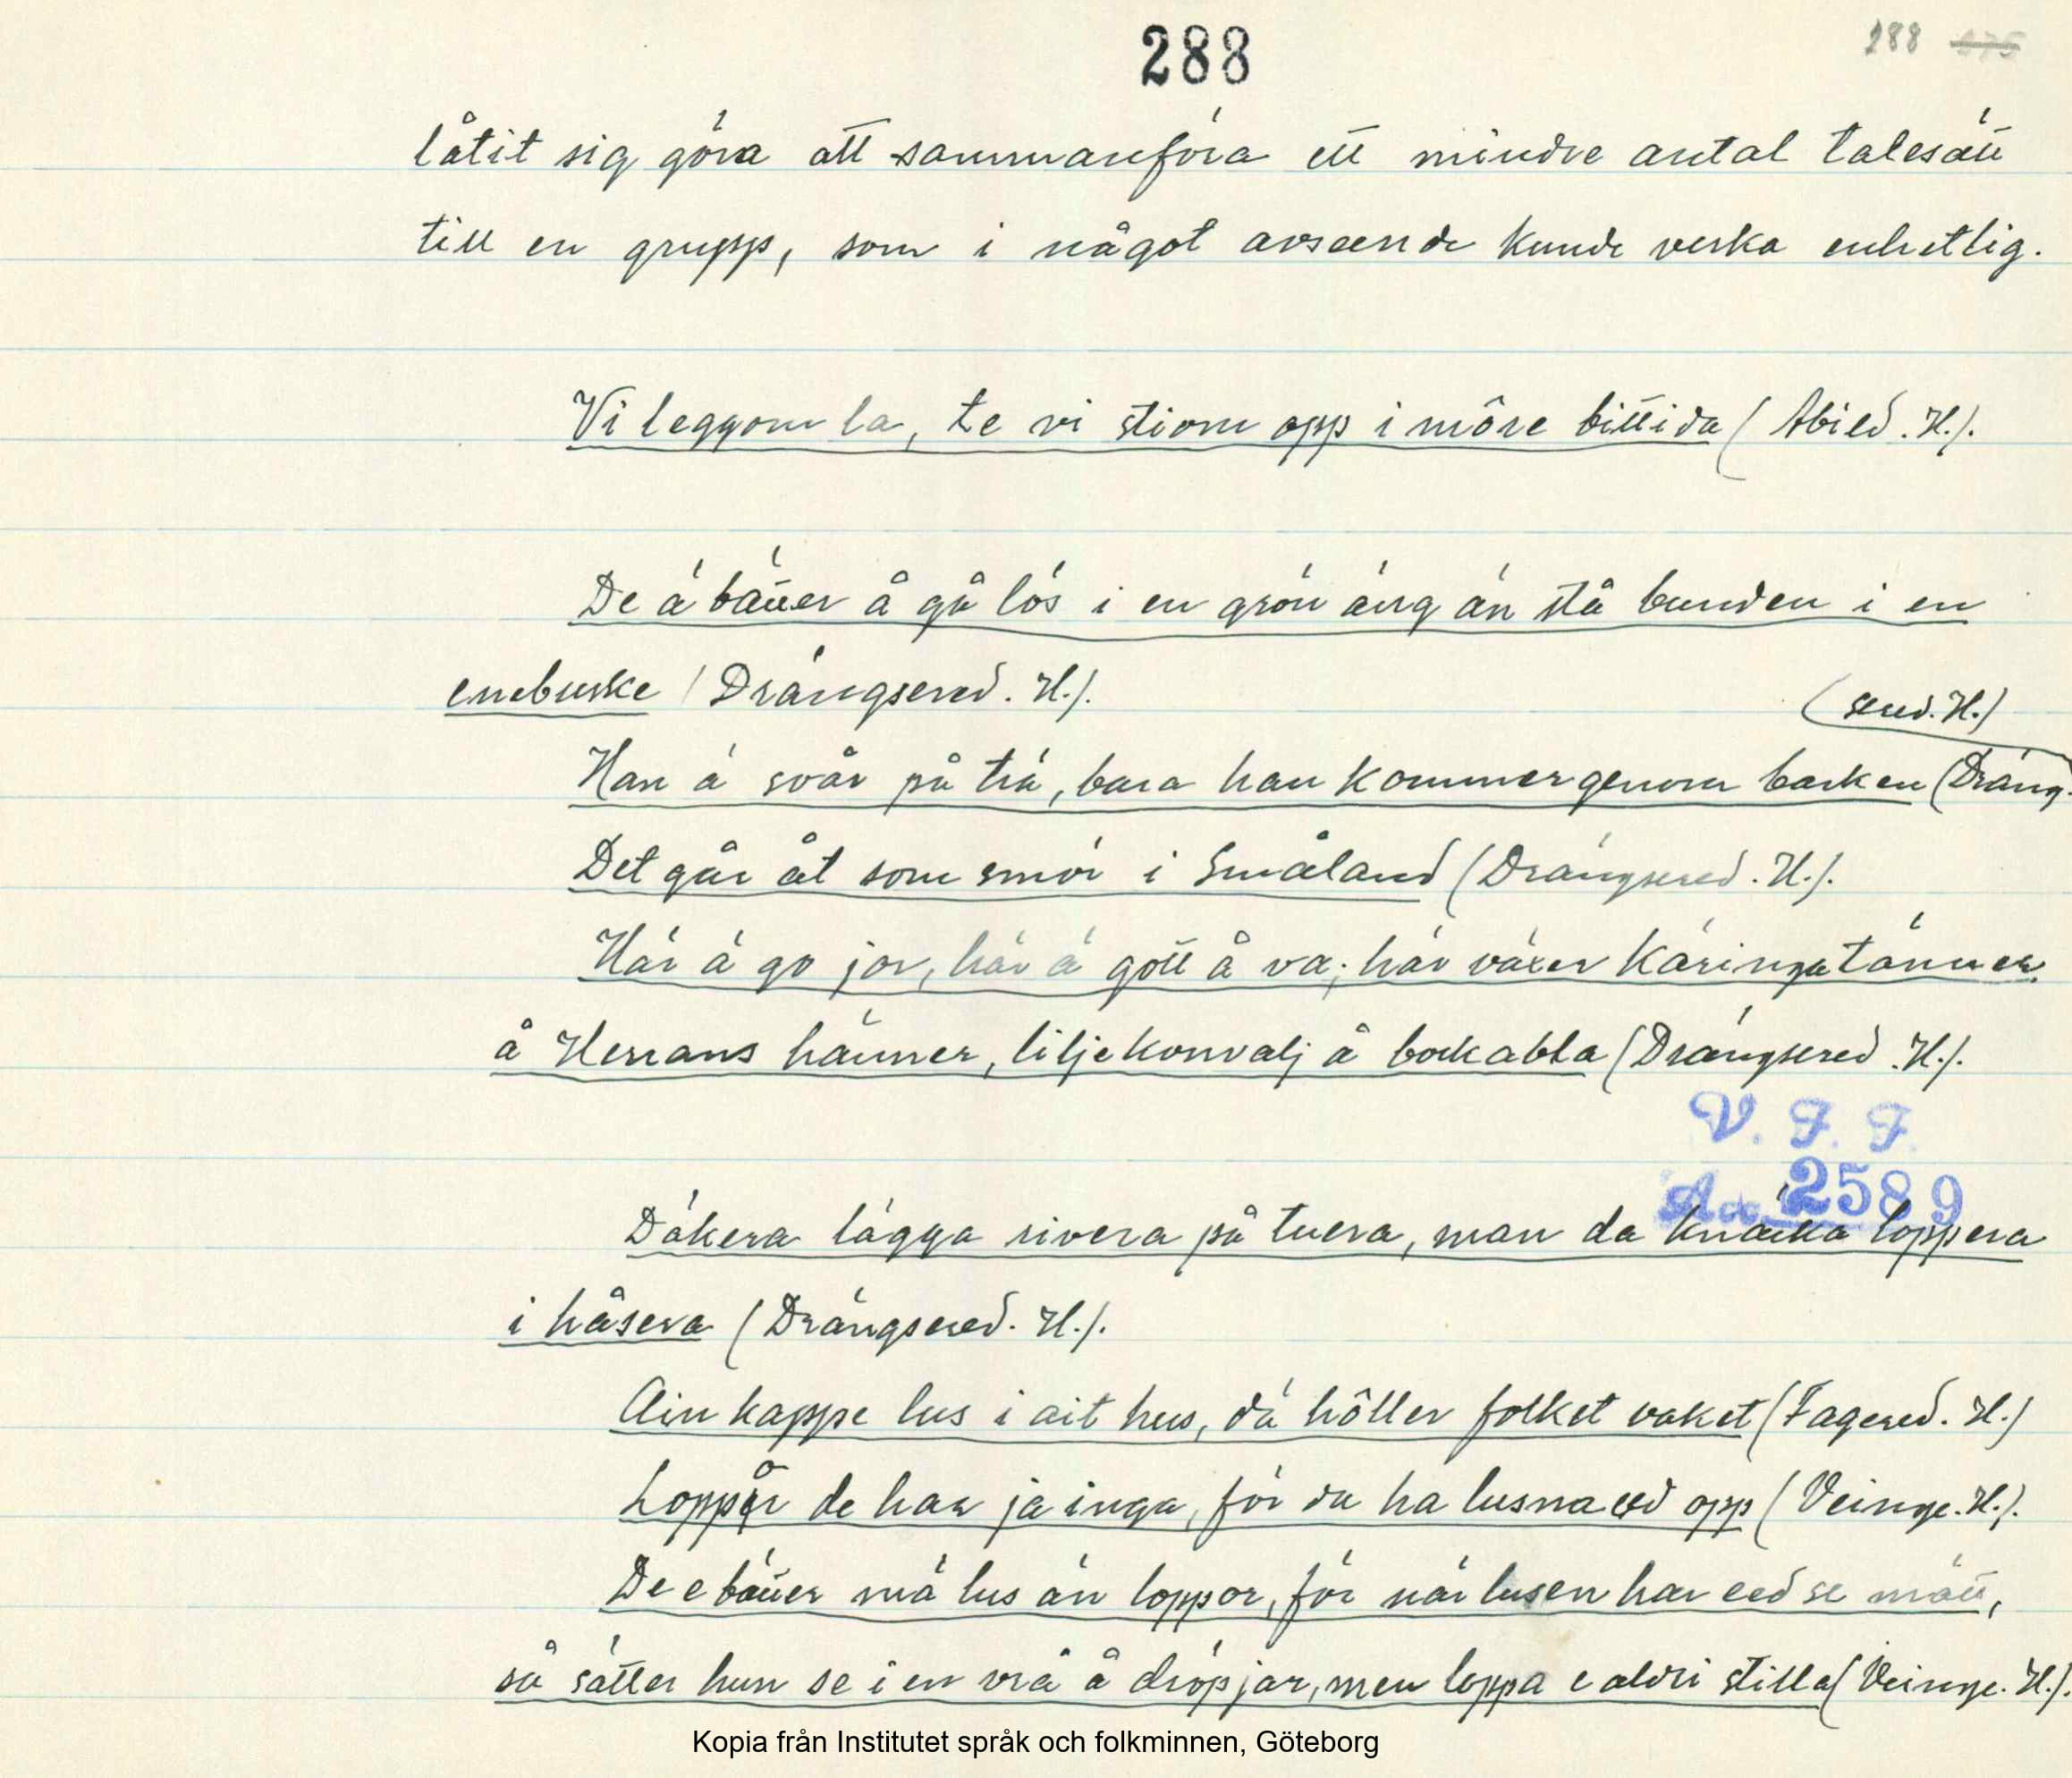 288
288 175
låtit sig göra att sammanföra ett mindre antal talesätt
till en grupp, som i något avseende kunde verka enhetlig.
Vi leggom la, te vi stiom opp i môre bittida (Abild. H.).
De ä bätter å gå lös i en grön äng än stå bunden i en
enebuske (Drängsered. H.).
(sered. H.)
Han ä svår på trä, bara han kommer genom barken (Dräng-
Det går åt som smör i Småland (Drängsered. H.).
Här ä go jor, här ä gott å va; här växer käringatänner
å Herrans hänner, liljekonvalj å bockabla (Drängsered. H.).
V. F. F.
Acc 2589
Däkera lägga rivera på tuera, man da knäcka loppera
i håsera (Drängsered. H.).
Ain kappe lus i ait hus, dä hôller folket vaket (Fagered. H.)
Loppår de har ja inga, för da ha lusna eed opp (Veinge. H.).
De e bätter mä lus än loppor, för när lusen har eed se mätt,
så sätter hun se i en vrå å dröpjar, men loppa e aldri stilla (Veinge. H.).
Kopia från Institutet språk och folkminnen, Göteborg